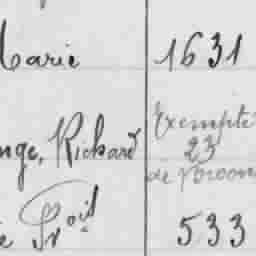 Marie 1631
nge, Richard Exempté
23
de Broom
e Proit 533